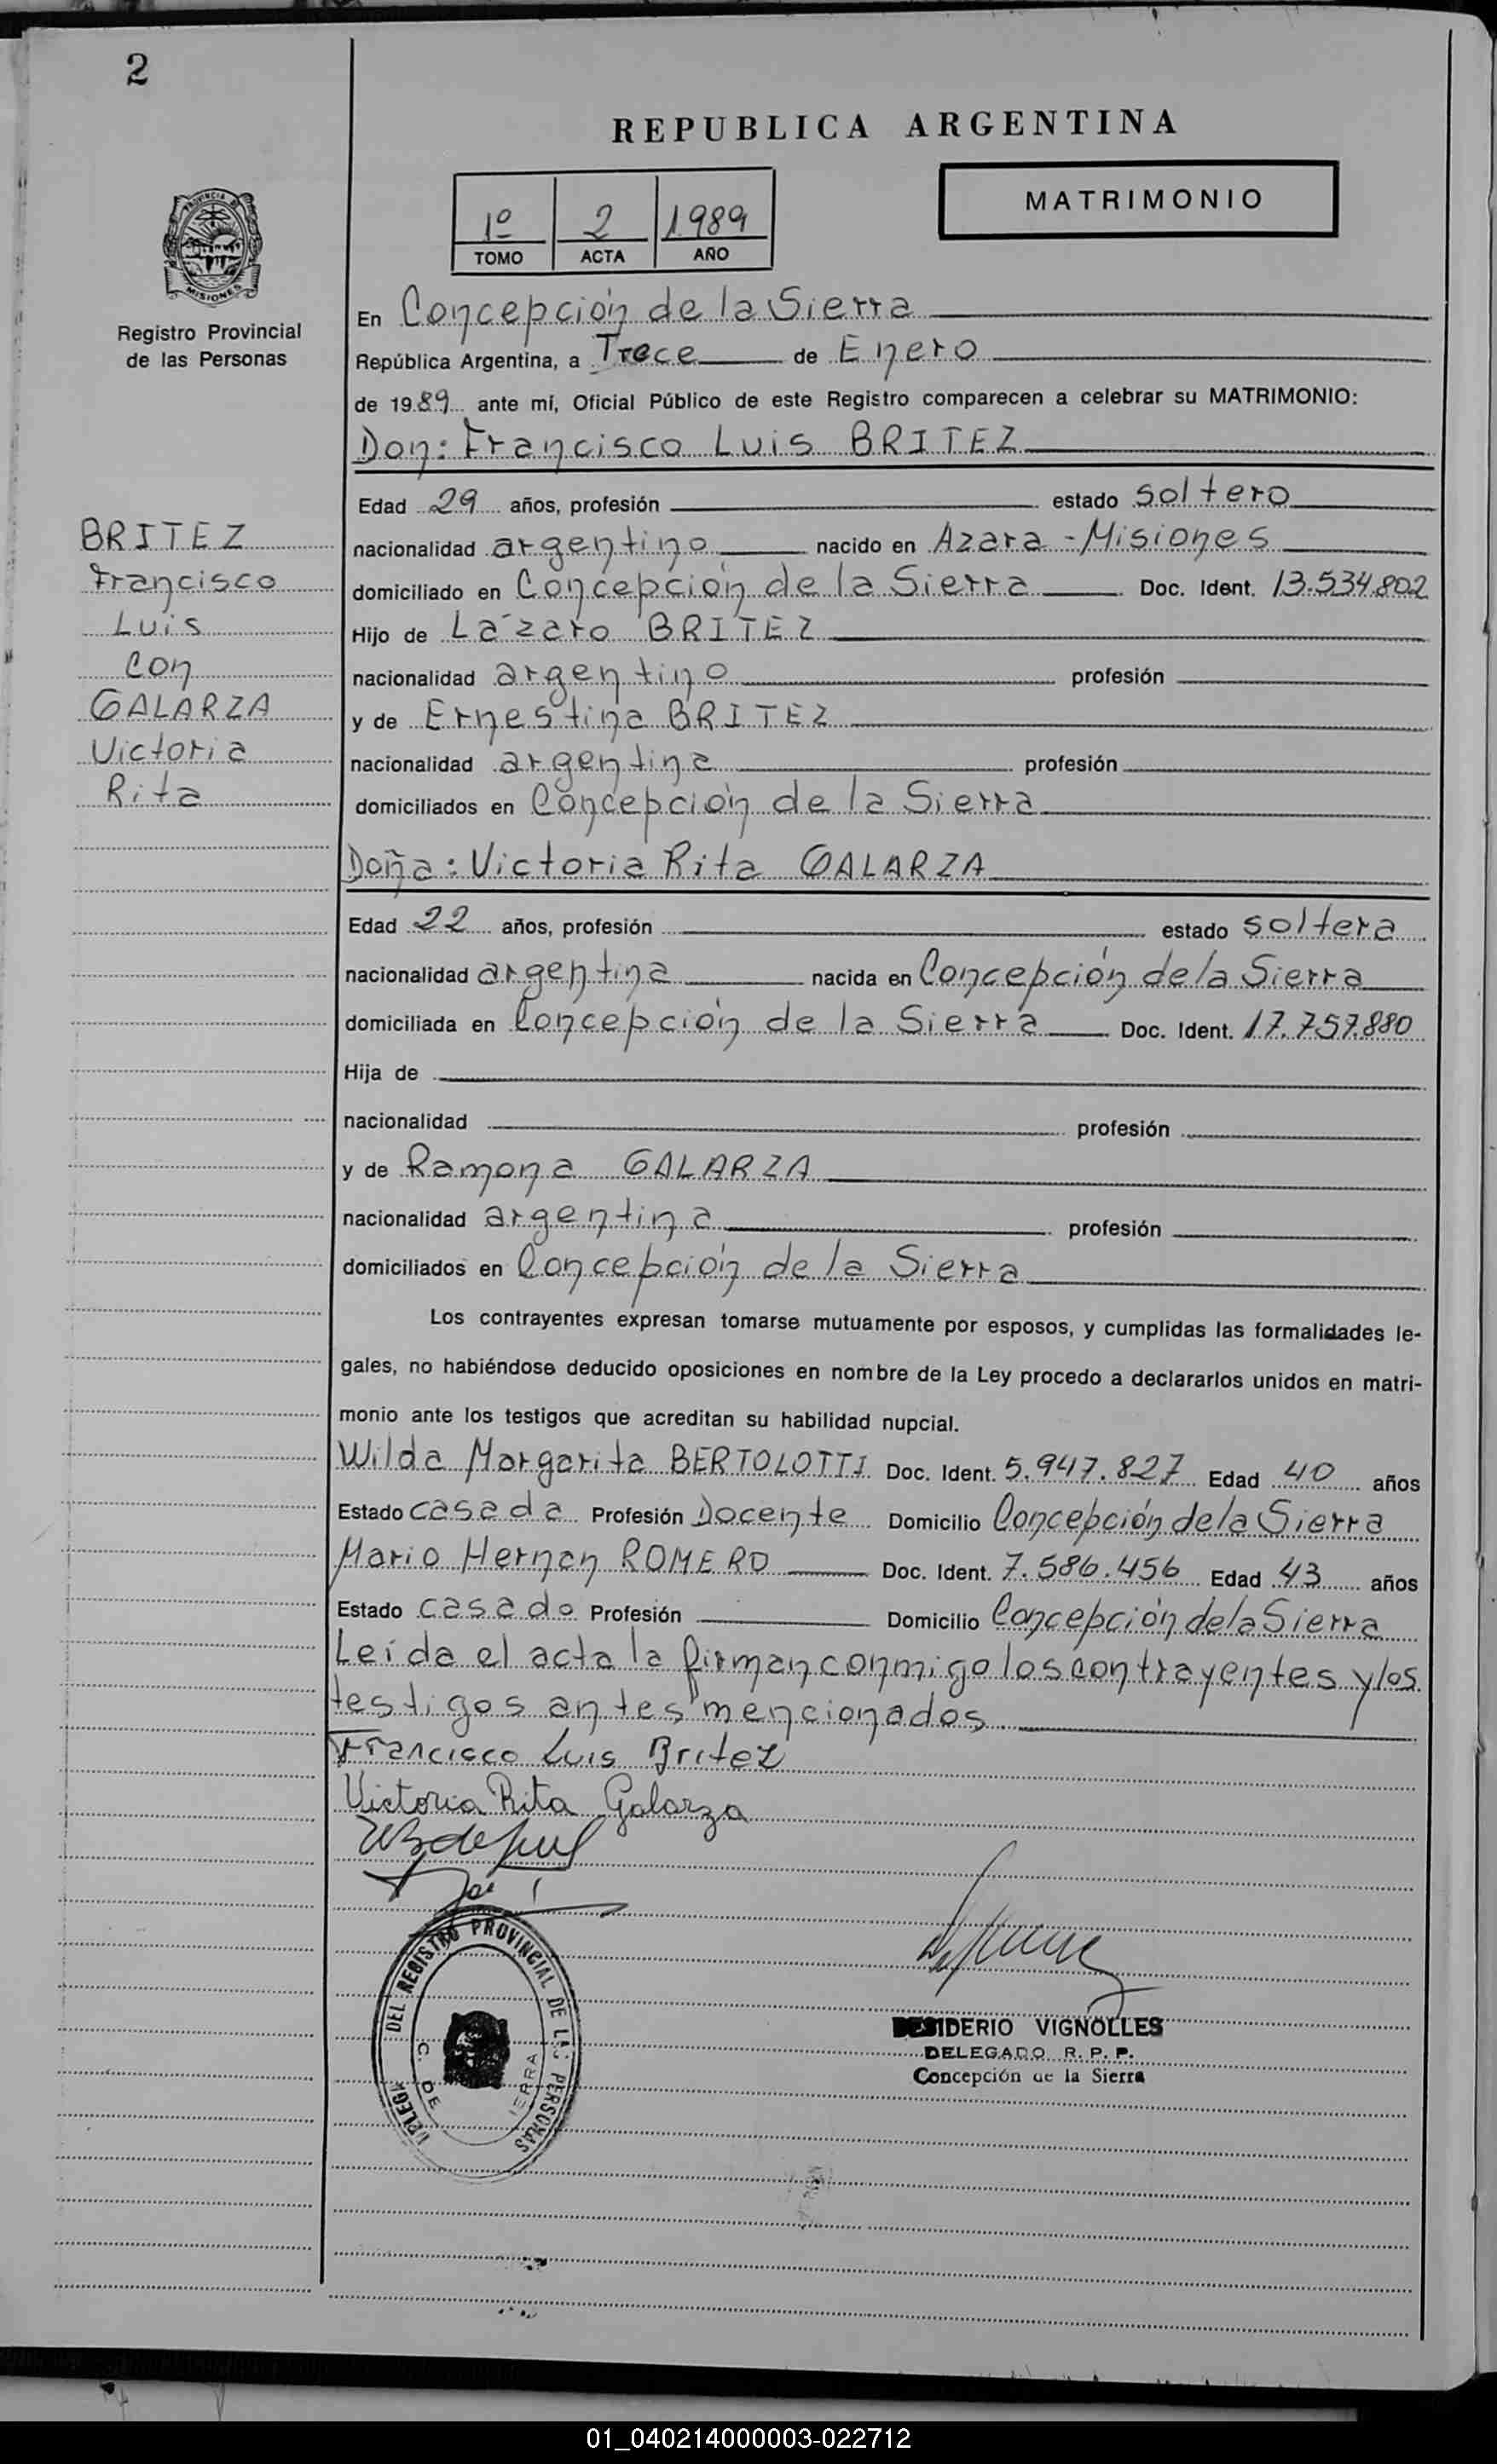 2
REPUBLICA ARGENTINA
MATRIMONIO
1º 2 1989
TOMO ACTA AÑO
PROVINCIA DE
MISIONES
Registro Provincial
de las Personas
En Concepción de la Sierra
República Argentina, a Trece de Enero
de 1989 ante mí, Oficial Público de este Registro comparecen a celebrar su MATRIMONIO:
Don: Francisco Luis BRITEZ
Edad 29 años, profesión estado soltero
BRITEZ
Francisco
Luis
con
GALARZA
Victoria
Rita
nacionalidad argentino nacido en Azara - Misiones
domiciliado en Concepción de la Sierra Doc. Ident. 13.534.802
Hijo de Lázaro BRITEZ
nacionalidad argentino profesión
y de Ernestina BRITEZ
nacionalidad argentina profesión
domiciliados en Concepción de la Sierra
Doña: Victoria Rita GALARZA
Edad 22 años, profesión estado soltera
nacionalidad argentina nacida en Concepción de la Sierra
domiciliada en Concepción de la Sierra Doc. Ident. 17.757.880
Hija de
nacionalidad profesión
y de Ramona GALARZA
nacionalidad argentina profesión
domiciliados en Concepción de la Sierra
Los contrayentes expresan tomarse mutuamente por esposos, y cumplidas las formalidades le-
gales, no habiéndose deducido oposiciones en nombre de la Ley procedo a declararlos unidos en matri-
monio ante los testigos que acreditan su habilidad nupcial.
Wilda Margarita BERTOLOTTI Doc. Ident. 5.947.827 Edad 40 años
Estado casada Profesión Docente Domicilio Concepción de la Sierra
Mario Hernan ROMERO Doc. Ident. 7.586.456 Edad 43 años
Estado casado Profesión Domicilio Concepción de la Sierra
Leída el acta la firman conmigo los contrayentes y los
testigos antes mencionados
Francisco Luis Britez
Victoria Rita Galarza
DEL REGISTRO PROVINCIAL DE LAS PERSONAS
C. DE
IERRA
DESIDERIO VIGNOLLES
DELEGADO R. P. P.
Concepción de la Sierra
01_040214000003-022712